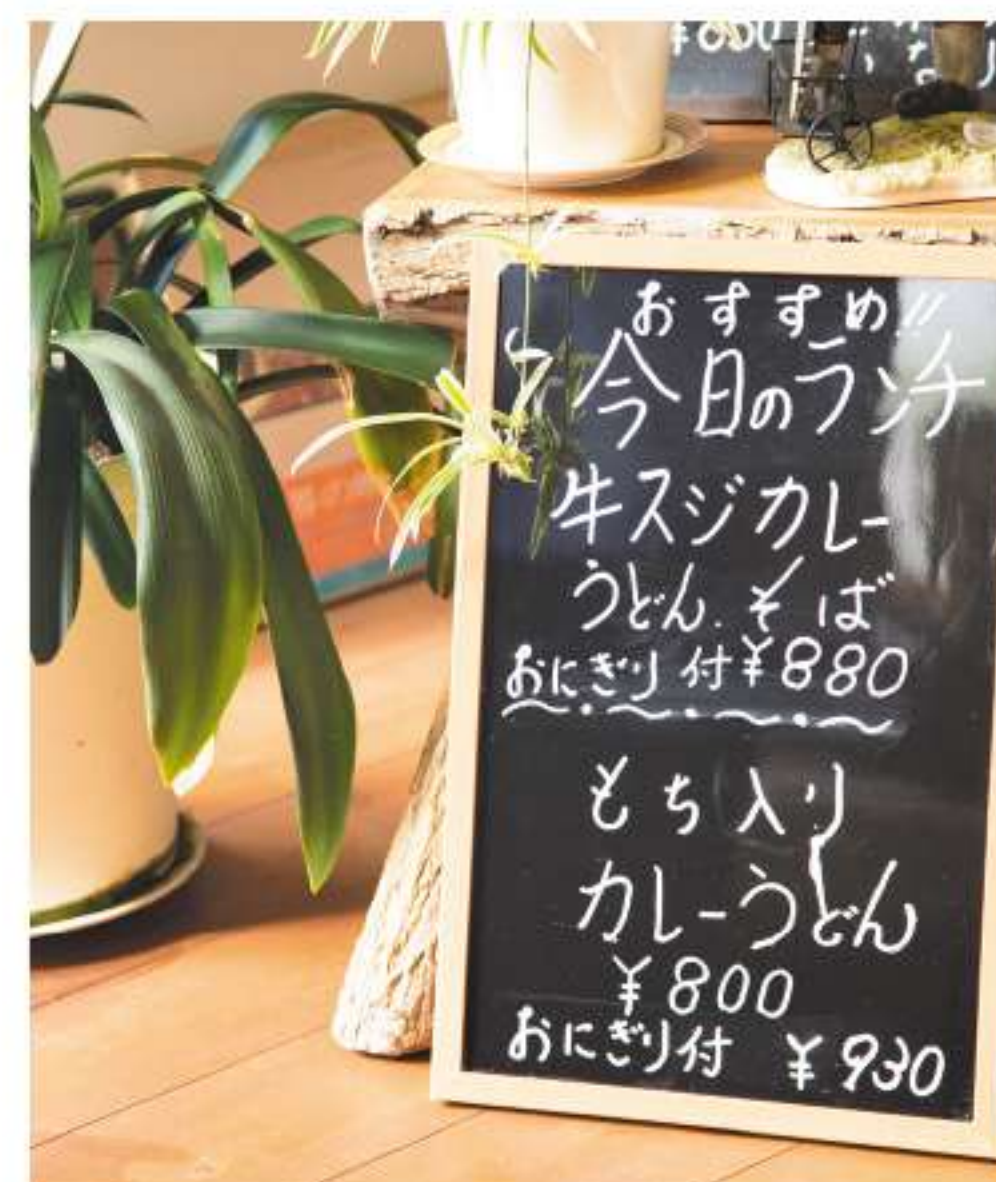 おすすめ!!
今日のランチ
牛スジカレー
うどん.そば
おにぎり付¥880
もち入り
カレーうどん
¥800
おにぎり付 ¥930